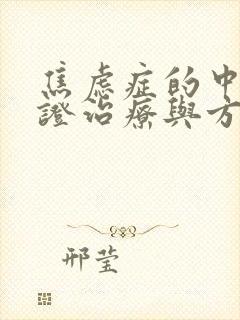 焦虑症的中
證治療與方
邢莹